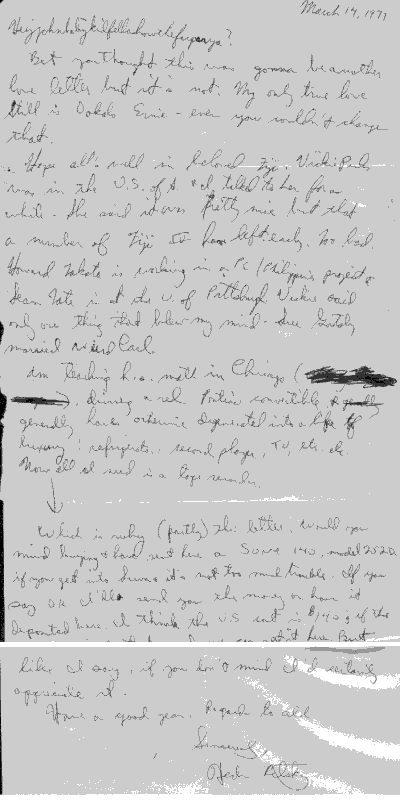 March 14, 1971
But you thought this was gonna be another
love letter but it's not. My only true love
still is Ernie - even you couldn't change
that.
Hope all's well in beloved Fiji. Vickie
was in the U.S. of A & I talked to her for a
while. She said it was pretty nice but that
a number of Fiji IV have left early. Too bad.
Howard is working in a PC/Philippines project &
Jean Tate is at the U. of Pittsburgh. Vickie said
only one thing that blew my mind - Sue
married Earl.
Am teaching h.s. math in Chicago (
), driving a red Pontiac convertible &
generally have otherwise degenerated into a life of
luxury: refrigerator, record player, TV, etc. etc.
Now all I need is a tape recorder.
Which is why (partly) this letter. Would you
mind buying & have sent here a Sony, model 252D
if you get into Suva & it's not too much trouble. If you
say OK I'll send you the money or have it
deposited here. I think the U.S. cost is $140 & if the
here. But
like I say, if you don't mind I'd certainly
appreciate it.
Have a good year. Regards to all
Sincerely,